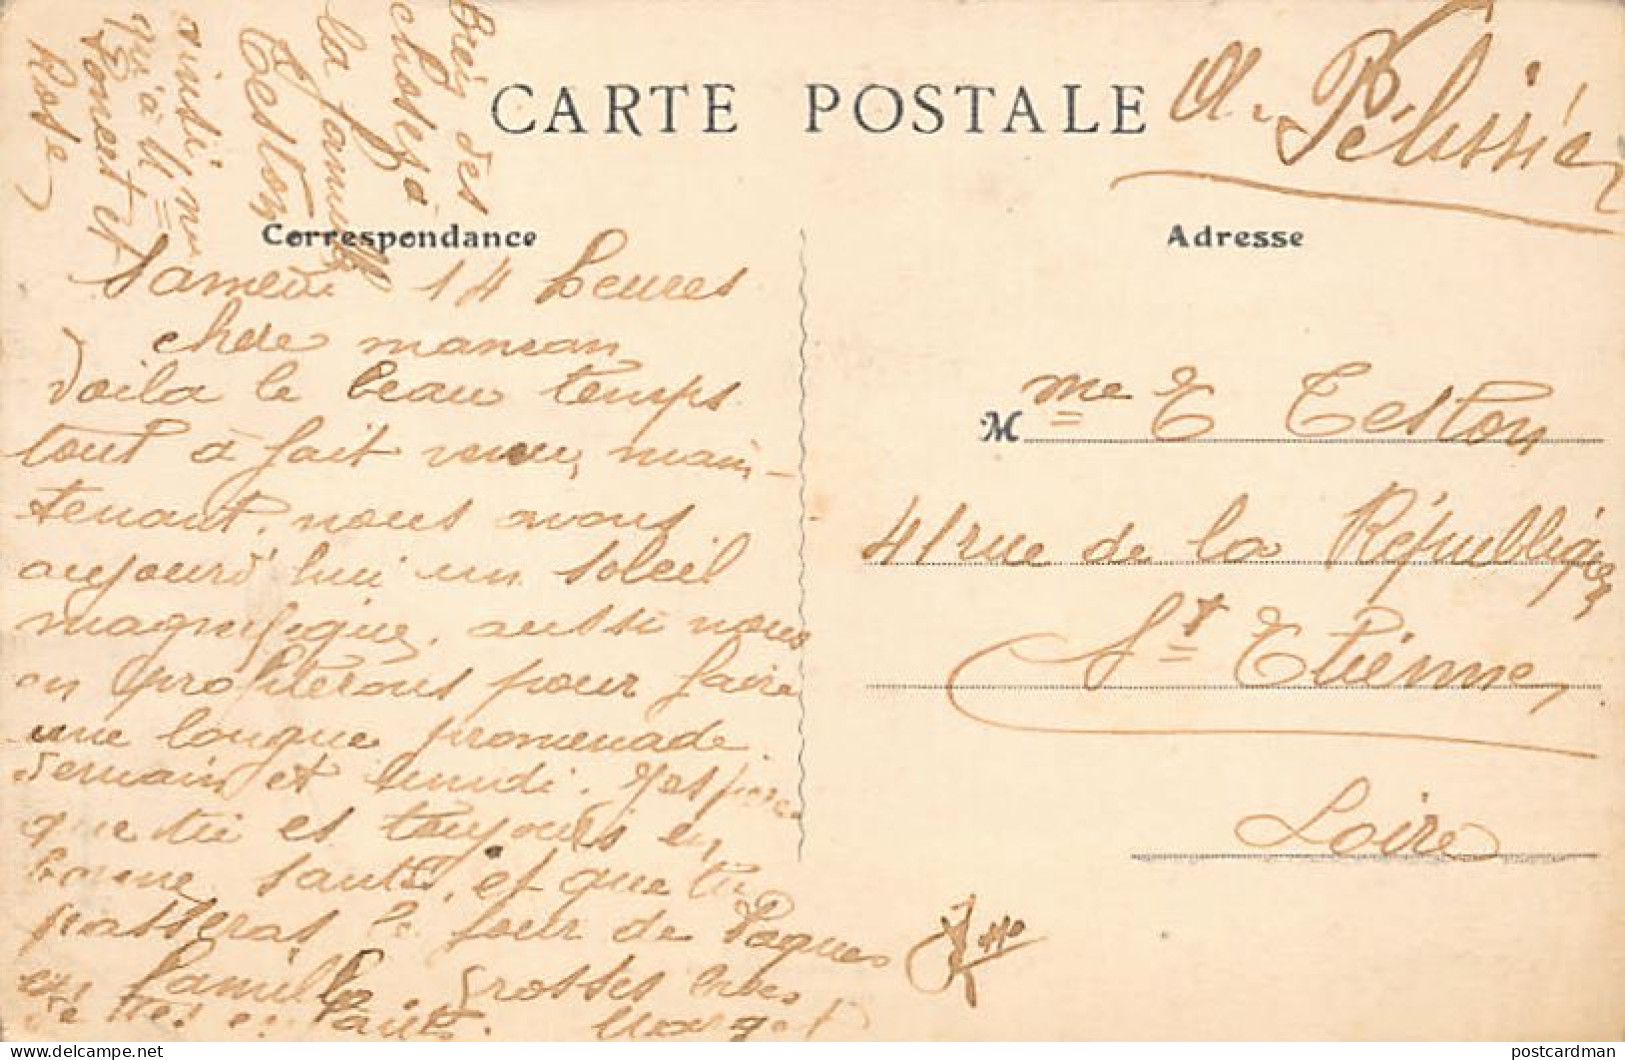 Bien des
choses à
la famille
Teston
ainsi
qu'à M
et
Rose
CARTE POSTALE
A. Pélissier
Correspondance
Adresse
Samedi 14 heures
chère maman
Voila le beau temps
tout à fait venu, main-
tenant, nous avons
aujourd'hui un soleil
magnifique, aussi nous
en profiterons pour faire
une longue promenade
demain et lundi. J'espère
que tu es toujours en
bonne santé, et que tu
passeras le jour de Paques
en famille. Grosses bises
de tes Margot
Mme E Teston
41 rue de la République
St Etienne
Loire
postcardman